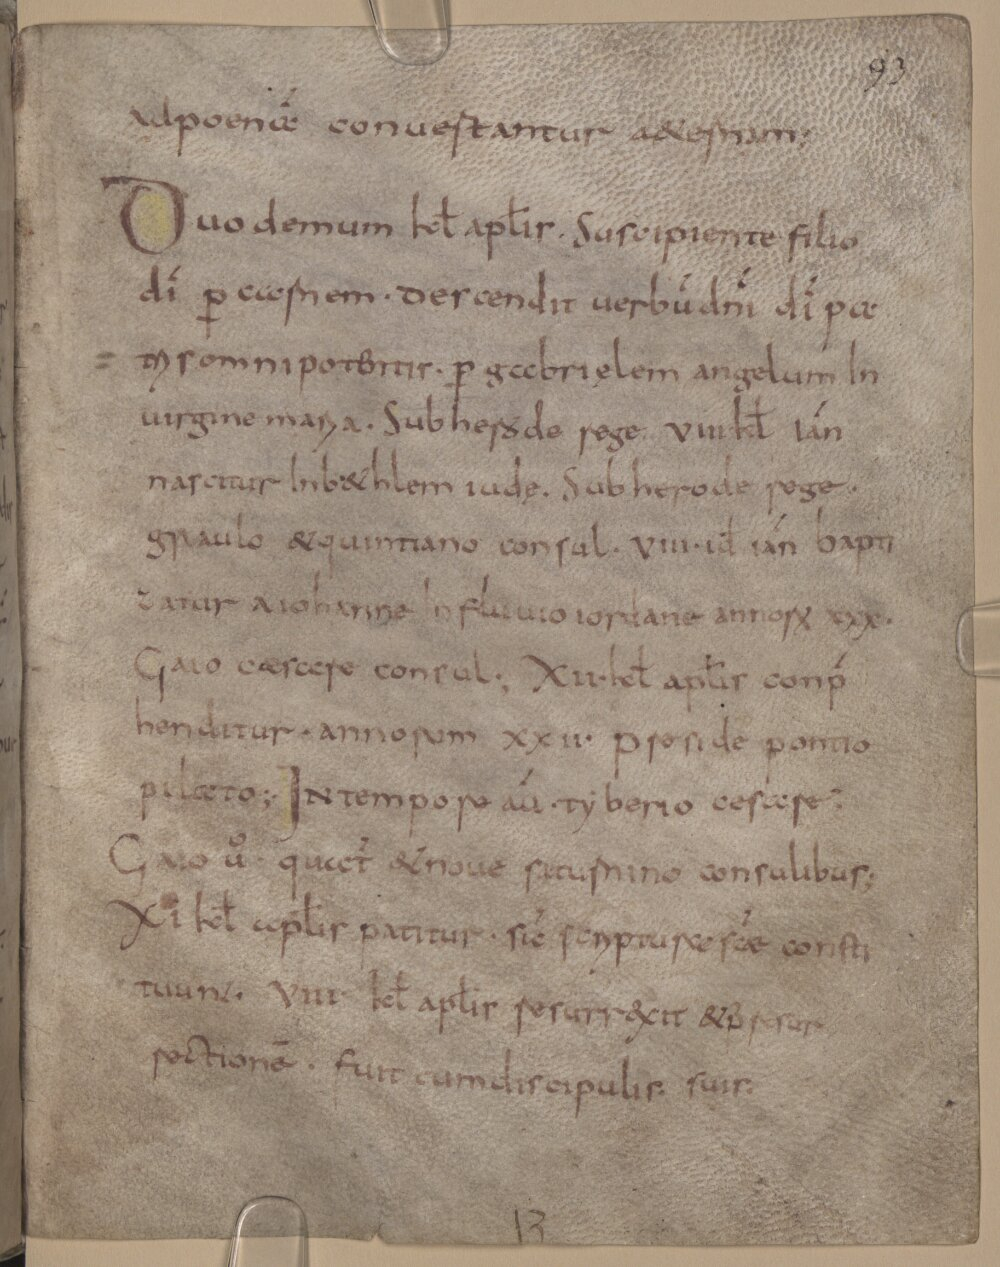 93
ad poenā convestantur aeternam;
Duo demum kł aplis. Suscipiente filio
dī p carnem. Descendit verbū dn̄i dī pa
tris omnipotentis. p gabrielem angelum In
virgine maria. Sub herode rege. VIII kł Iān
nascitur In bethlem iudę. Sub herode rege.
graulo & quintiano consul. VIII id iān bapti
zatur a iohanne In fluvio iordane annorum xxx.
Gaio caesare consul; XII kł aplis conp̄
henditur. annorum XXII. preside pontio
pilato; In tempore aū. tyberio cesare.
Gaio v̊. quat̄ & nove saturnino consulibus;
XI kł aplis patitur. sic̄ scripture sc̄ae consti
tuunt. VIII kł aplis resurrexit & p̄ resur
rectionē. fuit cum discipulis suis.
13